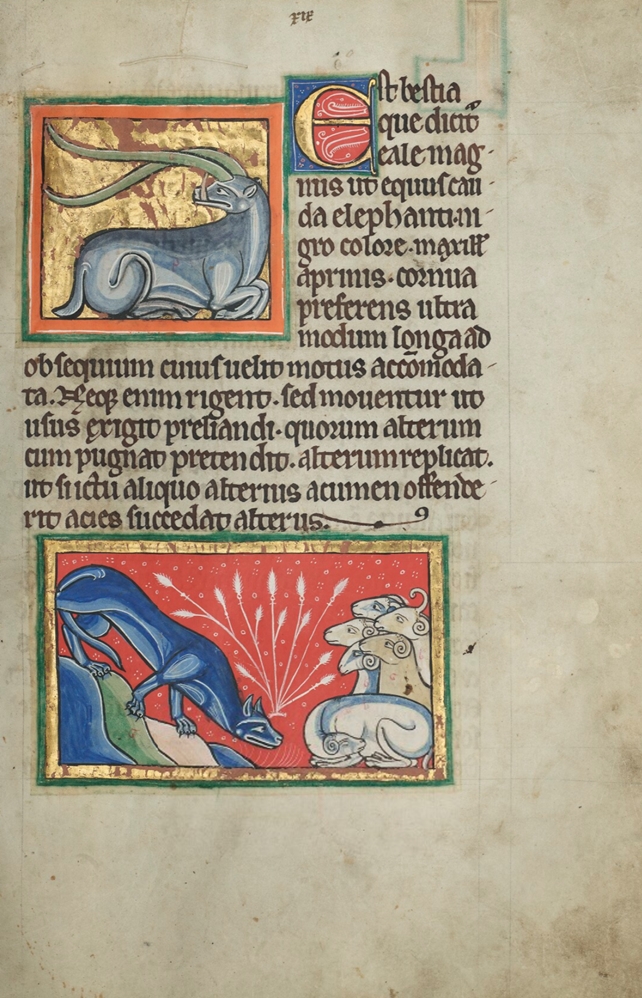 xix
Est bestia
que dicit̄
eale· mag-
nus ut equus cau-
da elephanti· ni-
gro colore· maxill̄
aprinis· cornua
preferens ultra
modum longa ad
obsequium cuius uelit motus accōmoda-
ta. Neqꝫ enim rigent· sed mouentur ut
usus exigit preliandi· quorum alterum
cum pugnat pretendit· alterum replicat.
ut si ictu aliquo alterius acumen offende-
rit acies succedat alterius.